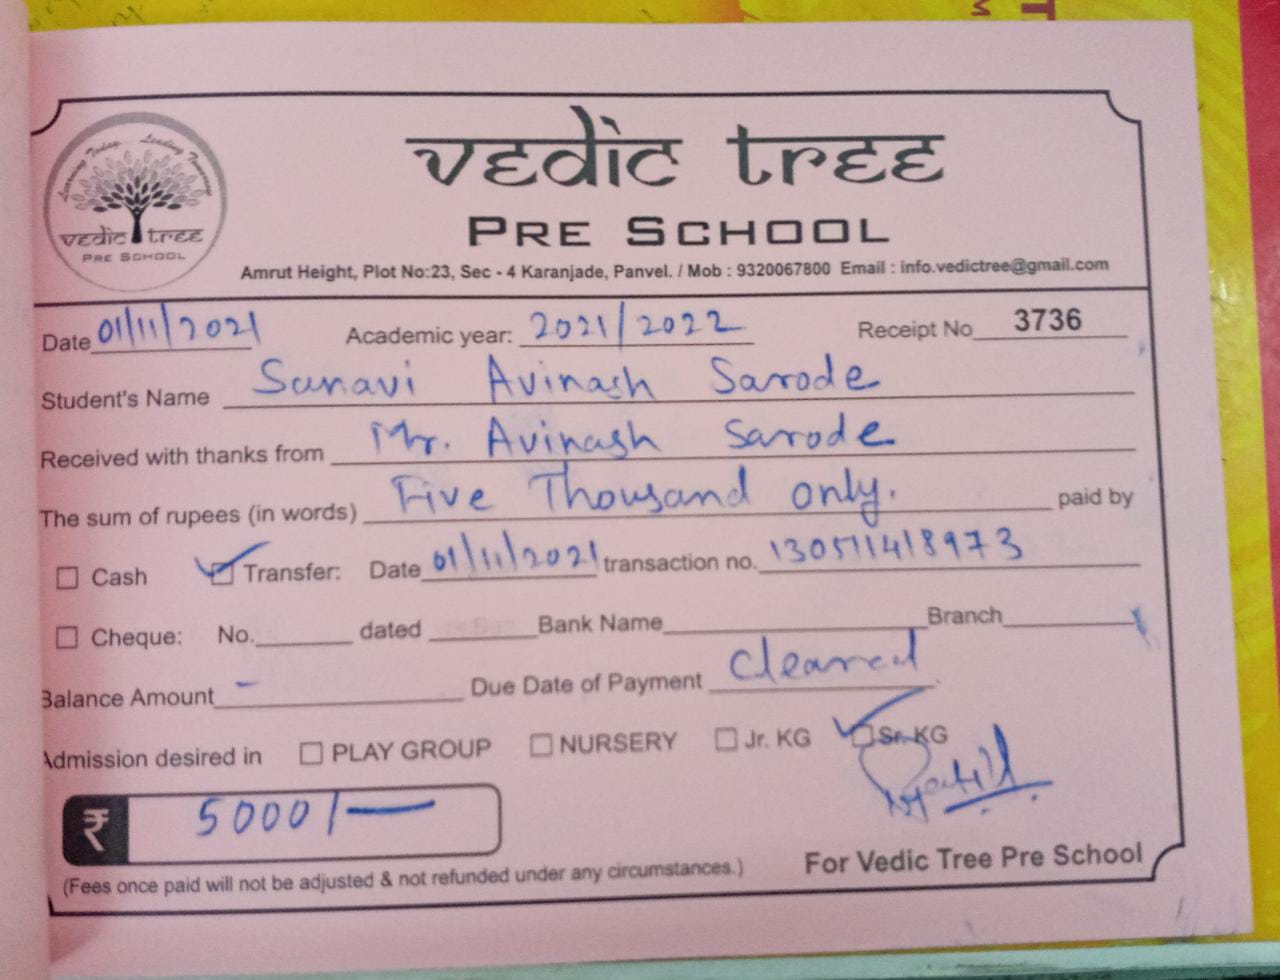 T
M
Learning Today... Leading Tomorrow
vedic tree
PRE SCHOOL
vedic tree
PRE SCHOOL
Amrut Height, Plot No:23, Sec - 4 Karanjade, Panvel. / Mob : 9320067800 Email : info.vedictree@gmail.com
Date 01/11/2021 Academic year: 2021/2022 Receipt No 3736
Student's Name Sanavi Avinash Sarode
Received with thanks from Mr. Avinash Sarode
The sum of rupees (in words) Five Thousand only. paid by
☐ Cash ☑ Transfer: Date 01/11/2021 transaction no. 130511418973
☐ Cheque: No. dated Bank Name Branch
Balance Amount - Due Date of Payment Cleared
Admission desired in ☐ PLAY GROUP ☐ NURSERY ☐ Jr. KG ☑ Sr. KG
₹ 5000/-
(Fees once paid will not be adjusted & not refunded under any circumstances.) For Vedic Tree Pre School